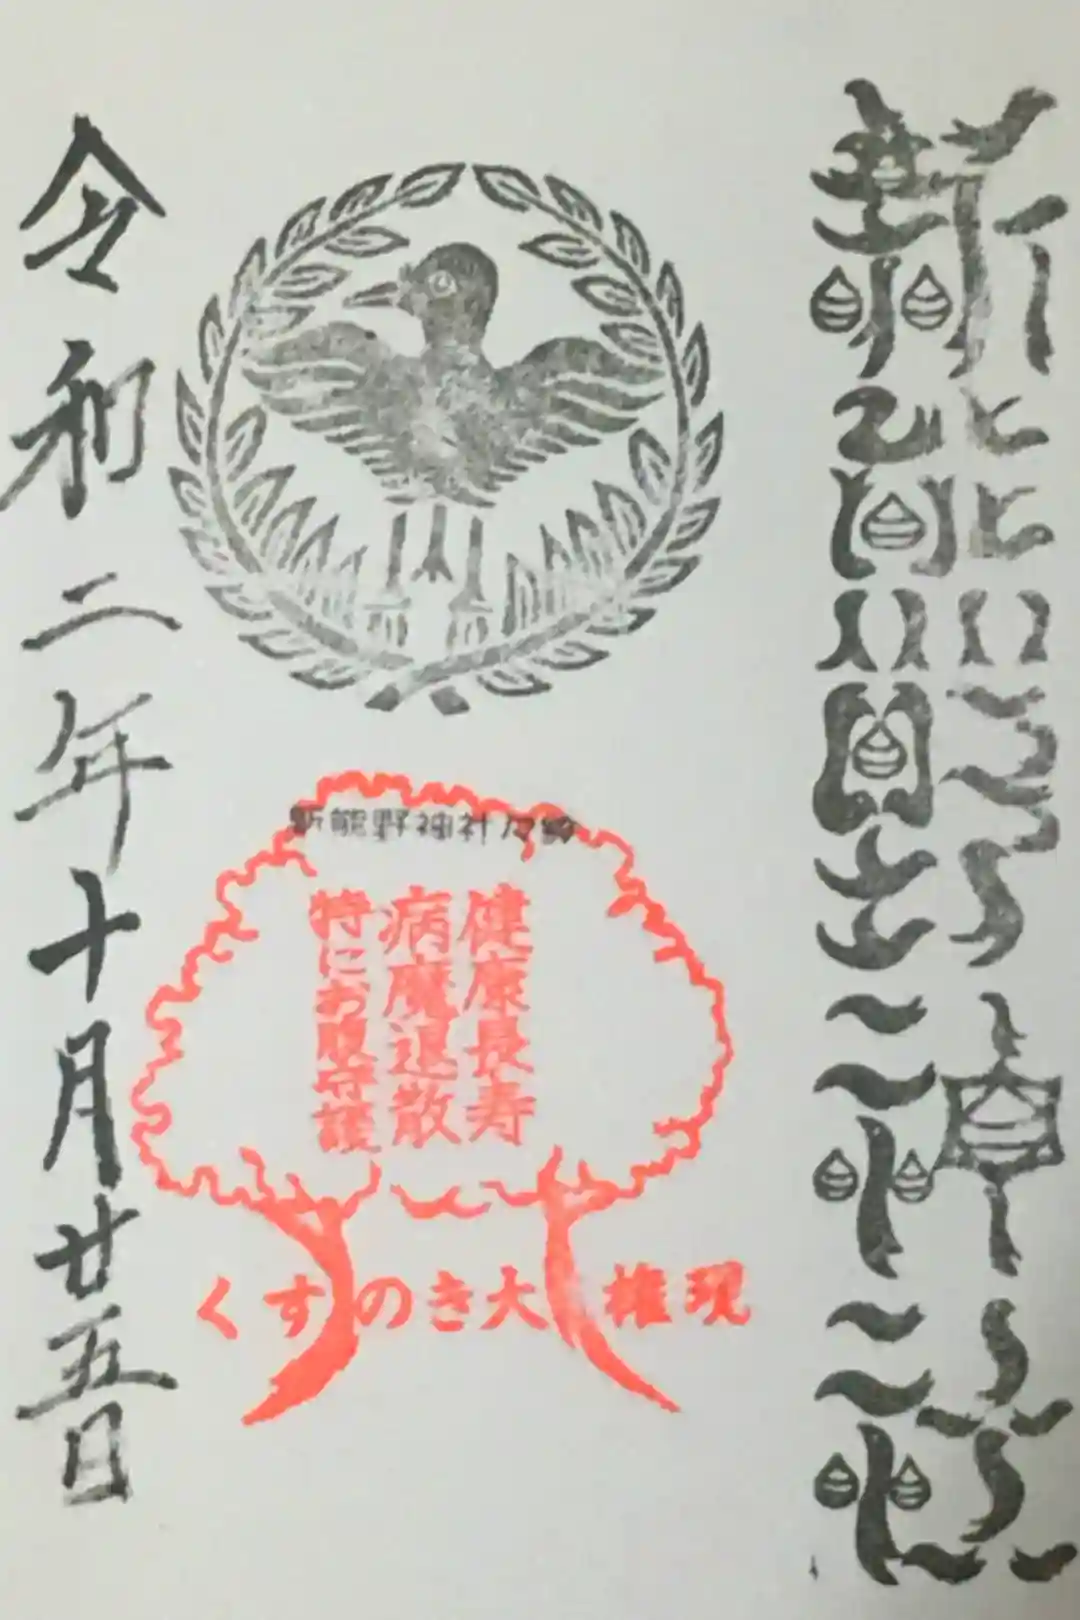 新熊野神社
健康長寿
病魔退散
特にお腹守護
くすのき大権現
令和二年十月廿五日